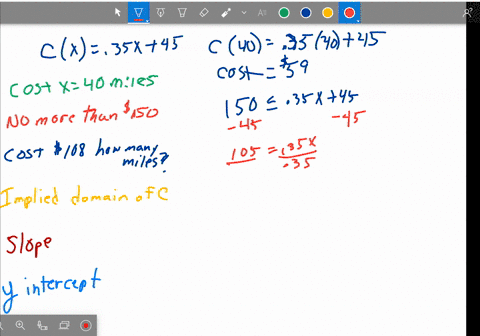 C(x)=.35x+45
Cost x=40 miles
No more than $150
Cost $108 how many miles?
Implied domain of C
Slope
y intercept
C(40)=.35(40)+45
cost=$59
150≤.35x+45
-45 -45
105 = .35x
.35